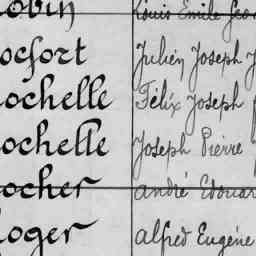 obin Louis Emile Geo
ocfort Julien Joseph J
ochelle Félix Joseph
ochelle Joseph Pierre
ocher André Edouar
oger Alfred Eugène